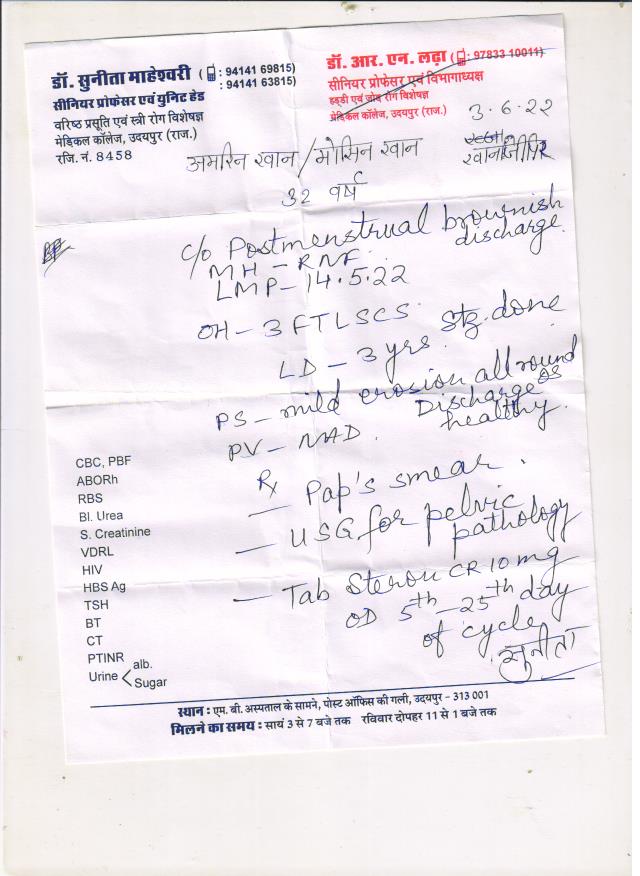 डॉ. सुनीता माहेश्वरी ( : 94141 69815)
: 94141 63815)
सीनियर प्रोफेसर एवं युनिट हेड
वरिष्ठ प्रसूति एवं स्त्री रोग विशेषज्ञ
मेडिकल कॉलेज, उदयपुर (राज.)
रजि. नं. 8458
डॉ. आर. एन. लढ़ा ( : 97833 10011)
सीनियर प्रोफेसर एवं विभागाध्यक्ष
हड्डी एवं जोड़ रोग विशेषज्ञ
मेडिकल कॉलेज, उदयपुर (राज.)
3.6.22
अमरिन खान / मोसिन खान
32 वर्ष
c/o Postmenstrual brownish
discharge.
MH - RNF
LMP - 14.5.22
OH - 3 FTLSCS. Stz. done
LD - 3 yrs.
PS - mild erosion all round
os
Discharge
healthy.
PV - NAD.
Rx
— Pap's smear.
— USG for pelvic
pathology
— Tab CR 10 mg
OD 5th - 25th day
of cycle
सुनीता
CBC, PBF
ABORh
RBS
Bl. Urea
S. Creatinine
VDRL
HIV
HBS Ag
TSH
BT
CT
PTINR
Urine < alb.
Sugar
स्थान : एम. बी. अस्पताल के सामने, पोस्ट ऑफिस की गली, उदयपुर - 313 001
मिलने का समय : सायं 3 से 7 बजे तक रविवार दोपहर 11 से 1 बजे तक